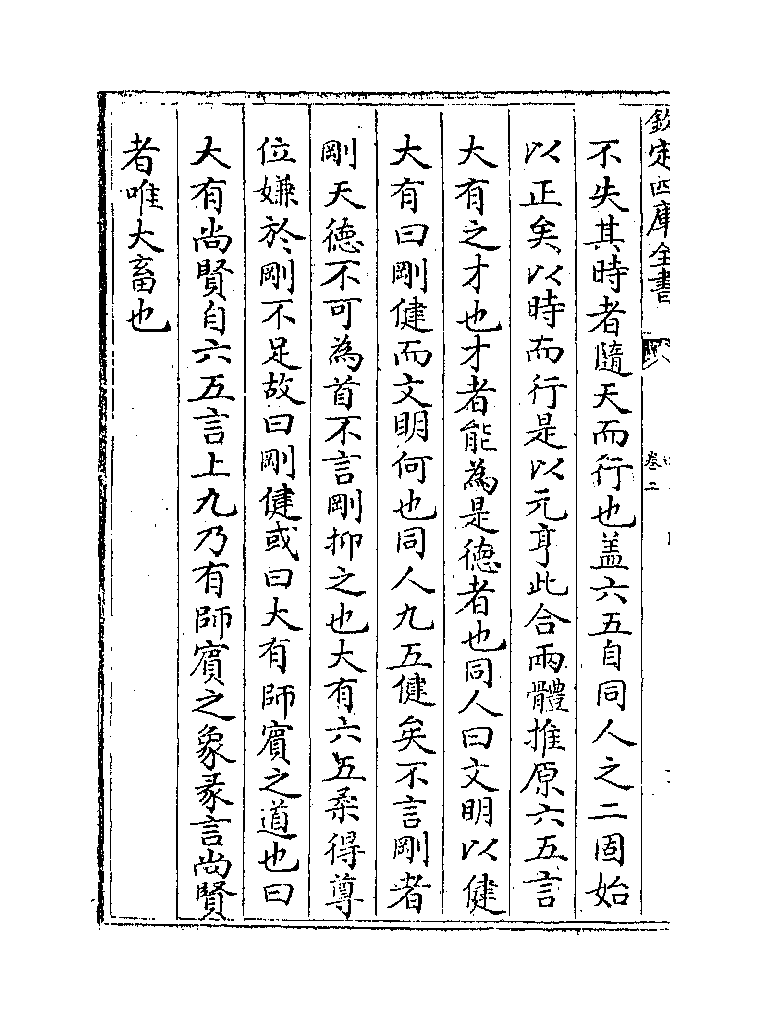 欽定四庫全書
卷二
不失其時者隨天而行也盖六五自同人之二固始
以正矣以時而行是以元亨此合兩體推原六五言
大有之才也才者能為是德者也同人曰文明以健
大有曰剛健而文明何也同人九五健矣不言剛者
剛天德不可為首不言剛抑之也大有六五柔得尊
位嫌於剛不足故曰剛健或曰大有師賓之道也曰
大有尚賢自六五言上九乃有師賓之象彖言尚賢
者唯大畜也